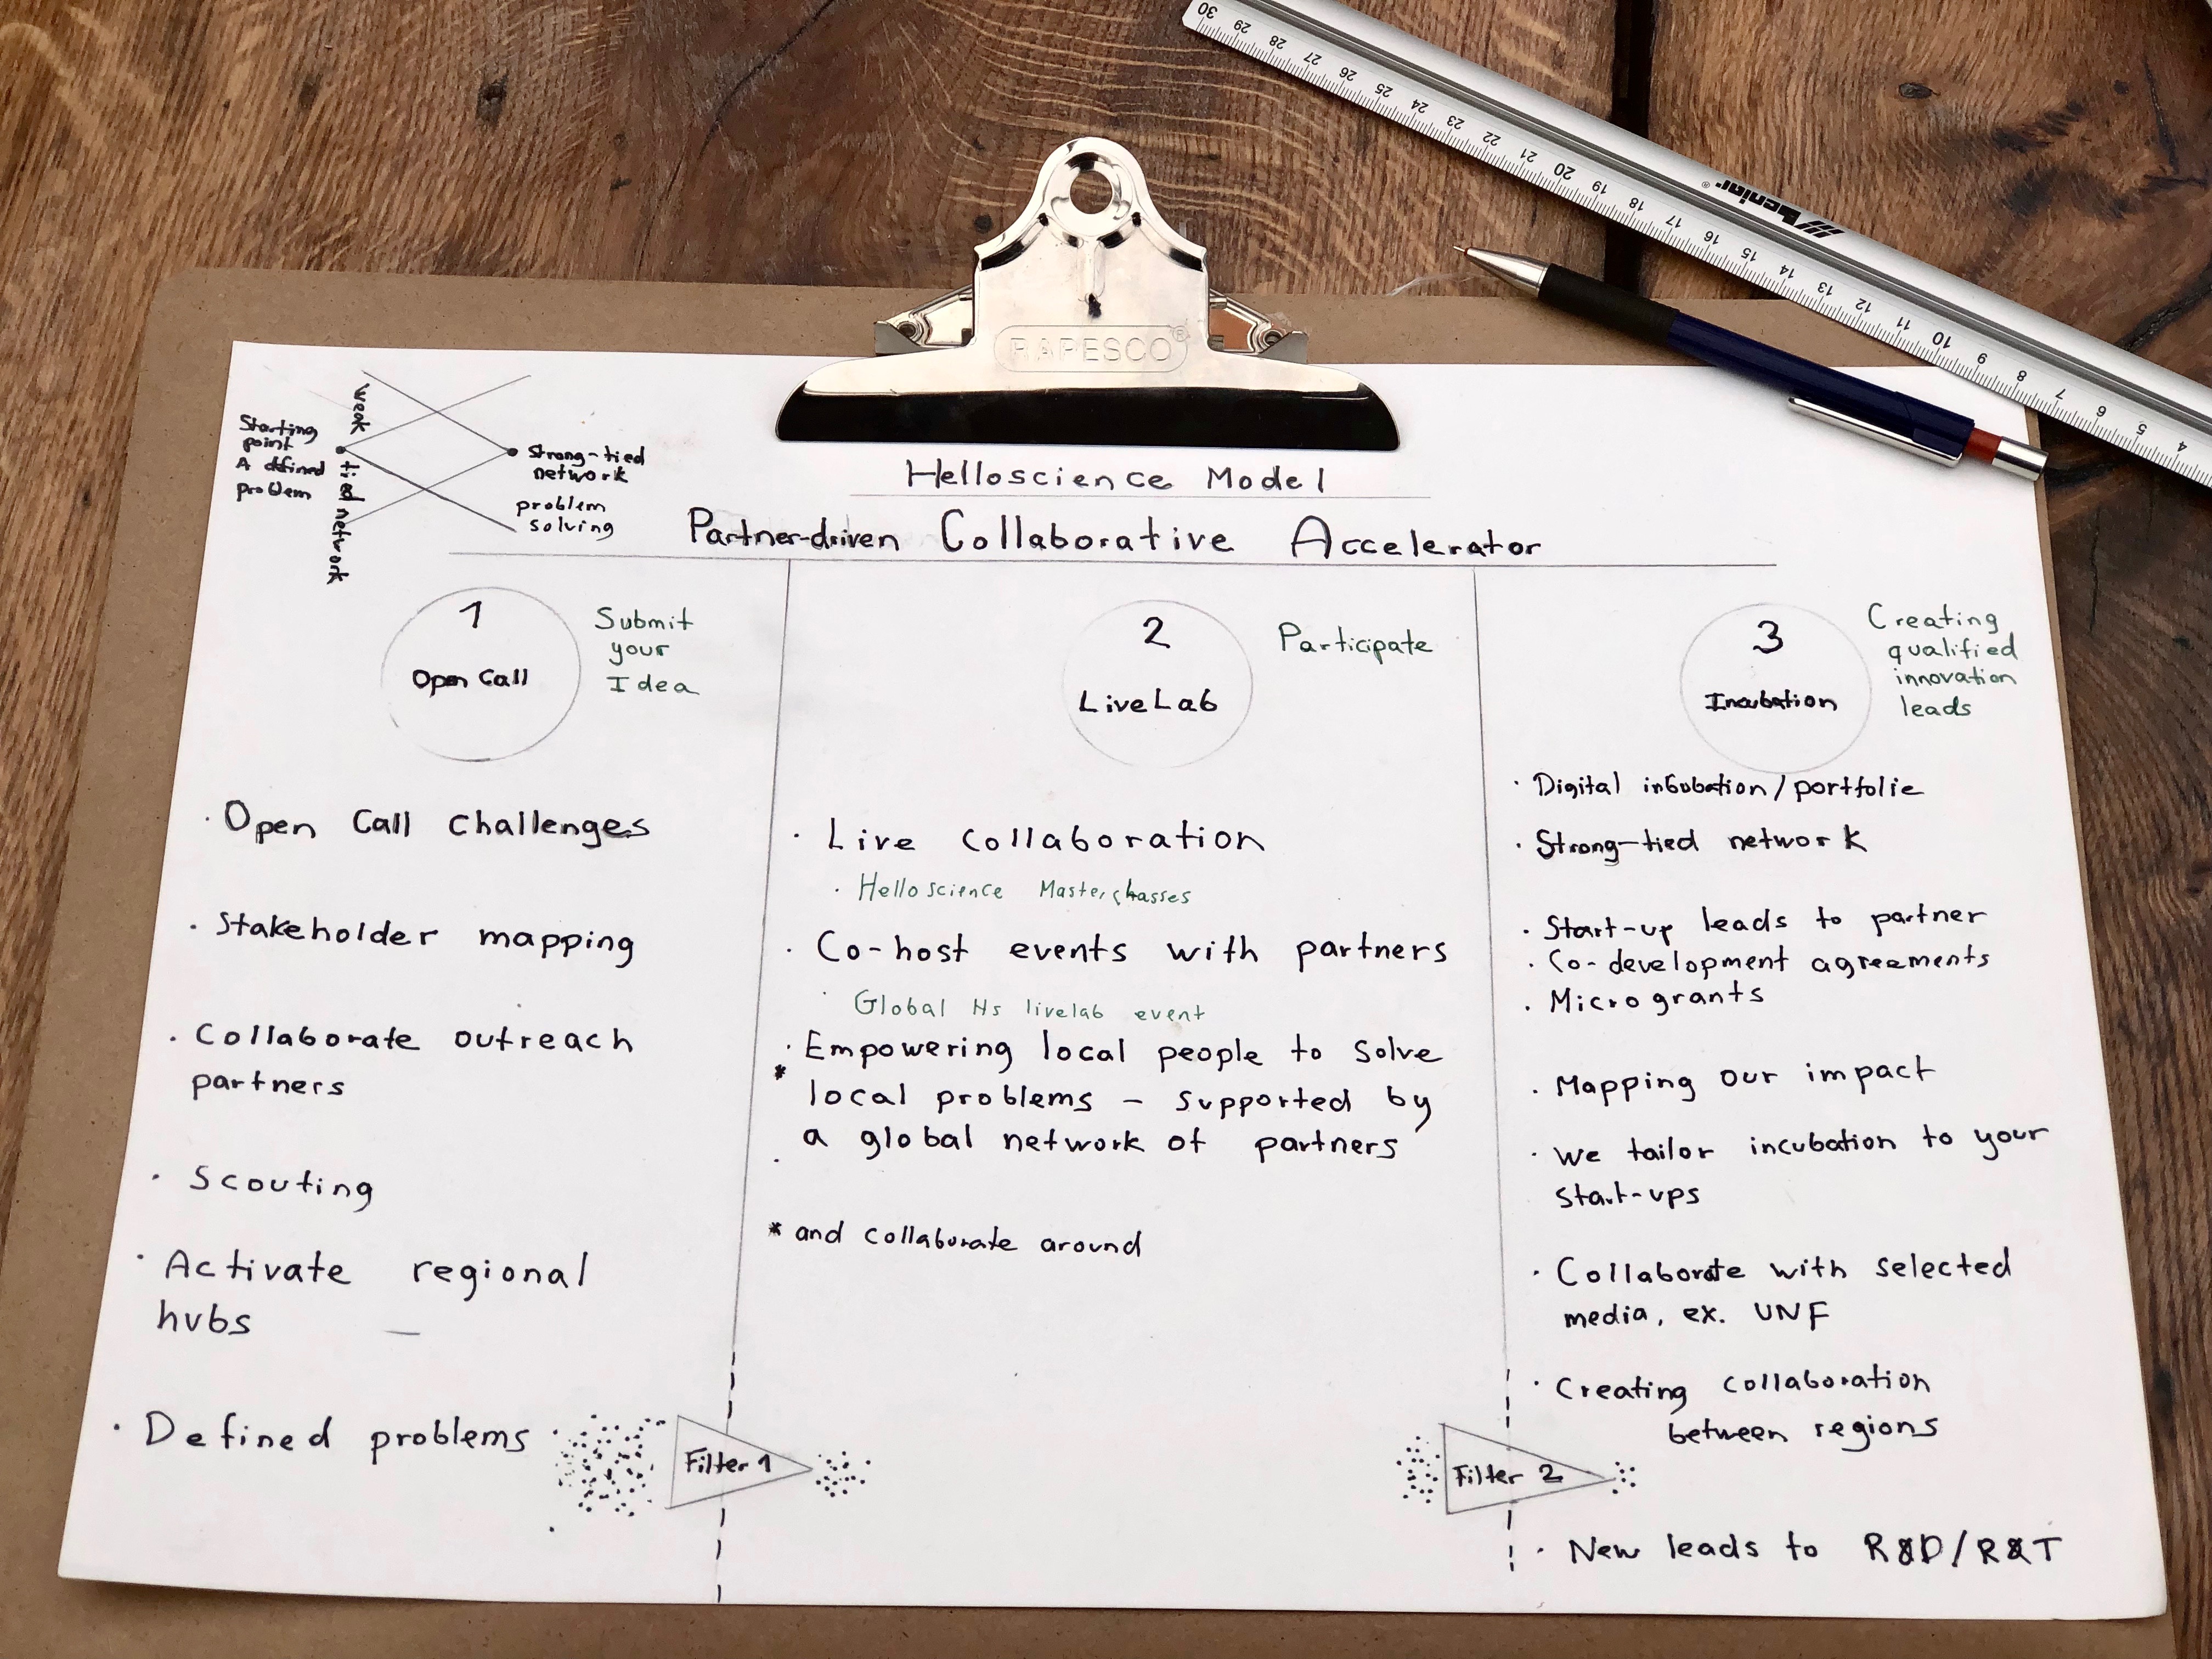 30 29 28 27 26 25 24 23 22 21 20 19 18 17 16 15 14 13 12 11 10 9 8 7 6 5 4
Leniar®
RAPESCO®
weak
tied network
Starting
point
A defined
problem
Strong-tied
network
problem
solving
Helloscience Model
Partner-driven Collaborative Accelerator
1
Open Call
Submit
your
Idea
· Open Call challenges
· Stakeholder mapping
· Collaborate outreach
partners
· Scouting
· Activate regional
hubs –
· Defined problems
Filter 1
2
LiveLab
Participate
· Live collaboration
· Helloscience Masterclasses
· Co-host events with partners
· Global Hs livelab event
· Empowering local people to solve
* local problems – supported by
a global network of partners
* and collaborate around
Filter 2
3
Incubation
Creating
qualified
innovation
leads
· Digital incubation/portfolie
· Strong-tied network
· Start-up leads to partner
· Co-development agreements
· Micro grants
· Mapping our impact
· We tailor incubation to your
start-ups
· Collaborate with selected
media, ex. UNF
· Creating collaboration
between regions
· New leads to R&D/R&T